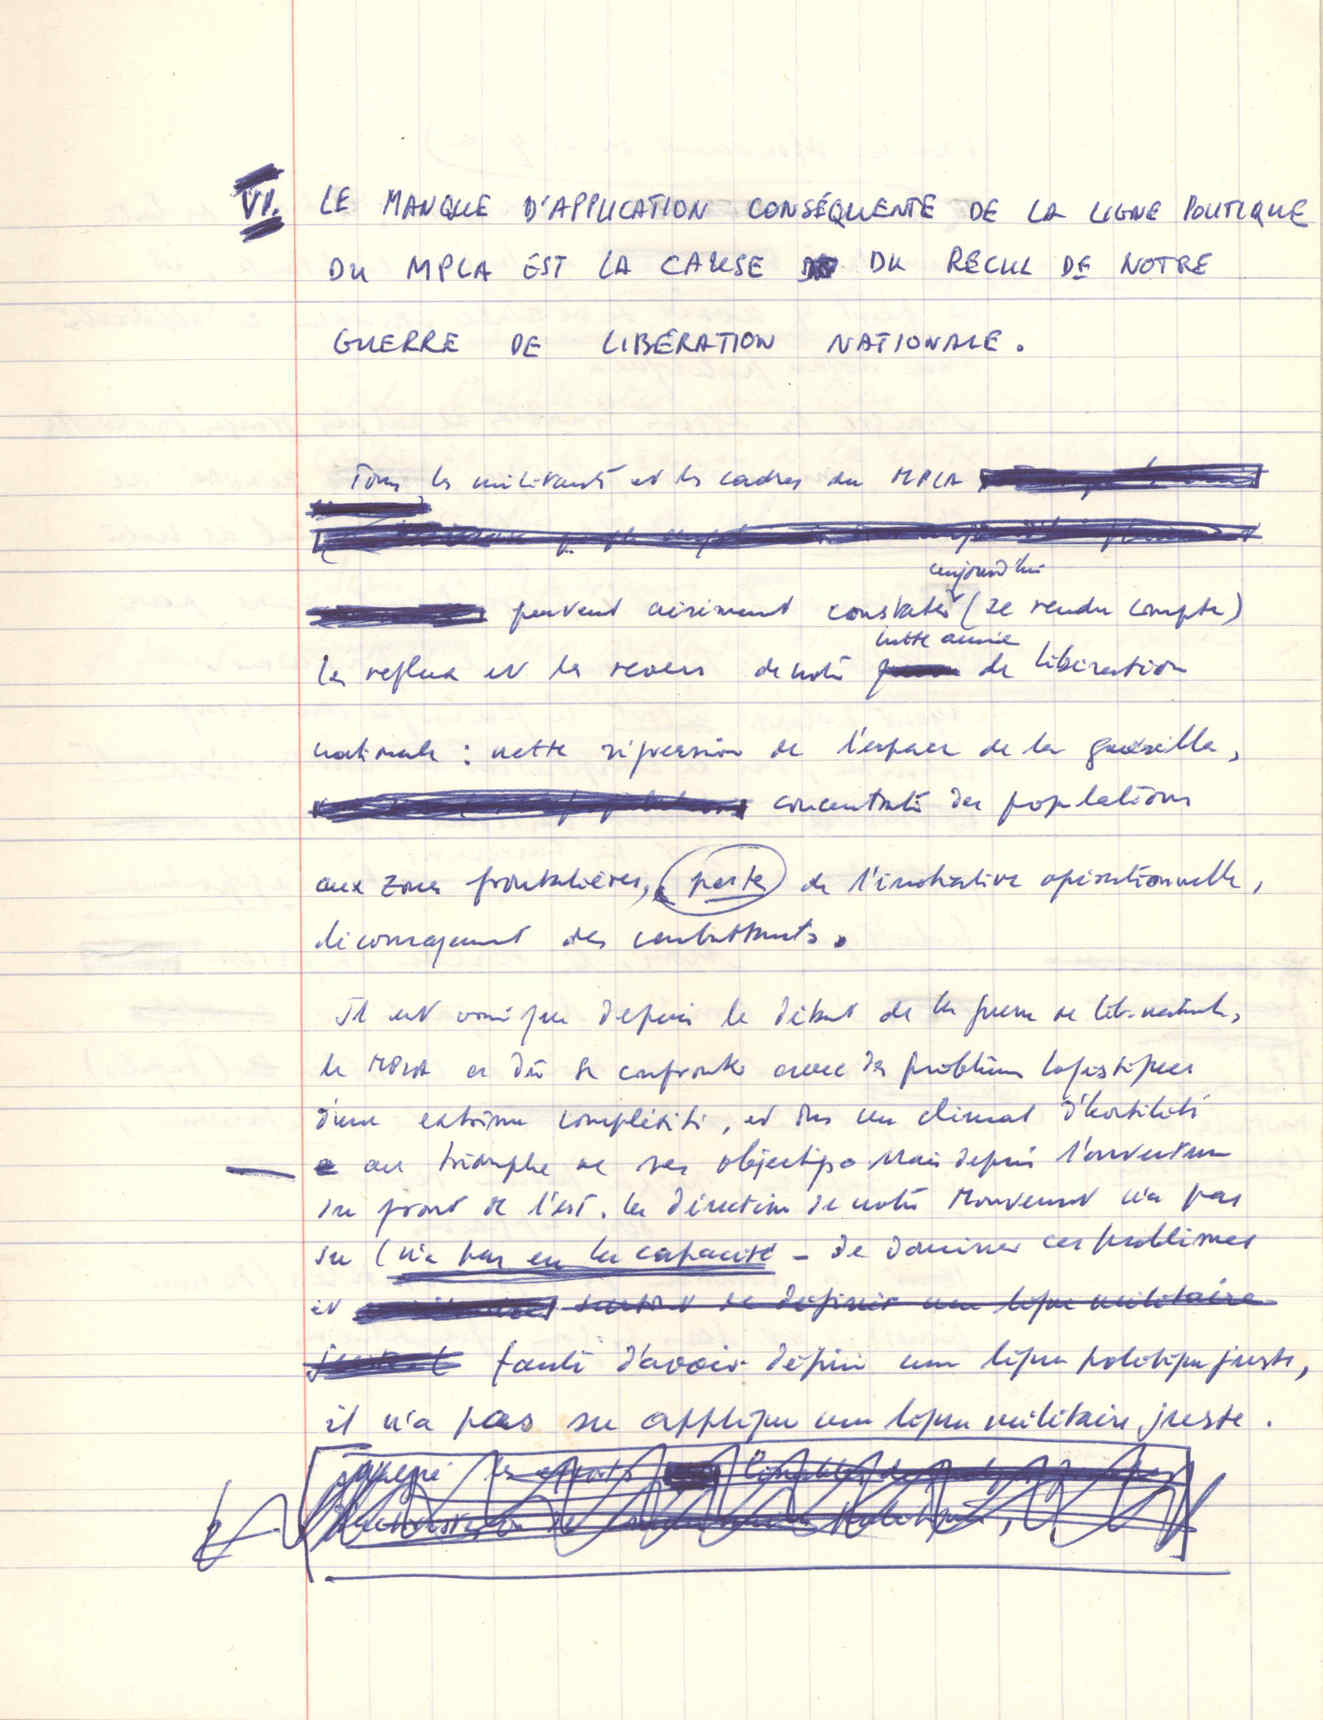 VI. LE MANQUE D'APPLICATION CONSÉQUENTE DE LA LIGNE POLITIQUE
DU MPLA EST LA CAUSE DU RECUL DE NOTRE
GUERRE DE LIBÉRATION NATIONALE.
Tous les militants et les cadres du MPLA
aujourd'hui
peuvent aisément constater (se rendre compte)
lutte armée
le reflux et les revers de notre de libération
nationale : nette régression de l'espace de la guérilla,
concentrati des populations
aux zones frontalières, perte de l'initiative opérationnelle,
découragement des combattants.
Il est vrai que depuis le début de la guerre de lib. nationale,
le MPLA a dû se confronter avec des problèmes logistiques
d'une extrême complexité, et dans un climat d'hostilité
au triomphe de ses objectifs. Mais depuis l'ouverture
du front de l'est. la direction de notre Mouvement n'a pas
su (n'a pas eu la capacité - de dominer ces problèmes
et surtout de définir une ligne militaire
faute d'avoir défini une ligne politique juste,
il n'a pas su appliquer une ligne militaire juste.